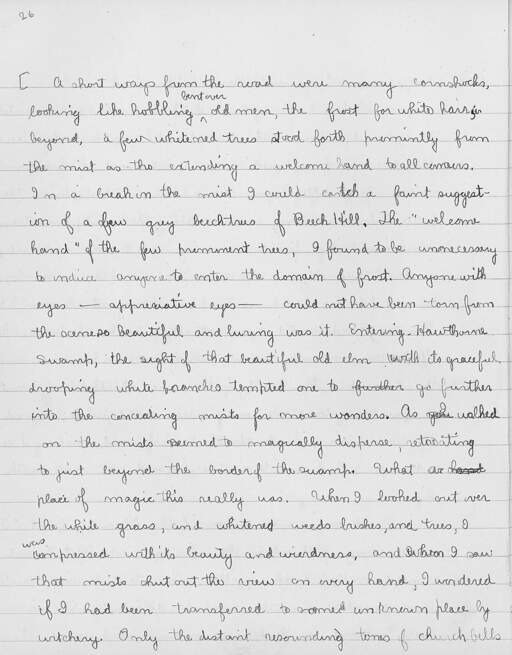 26
[ A short ways from the road were many cornshocks,
looking like hobbling bent over old men, the frost for white hair
beyond, a few whitened trees stood forth prominently from
the mist as tho extending a welcome hand to all comers.
In a break in the mist I could catch a faint suggest-
ion of a few grey beechtrees of Beech Hill. The "welcome
hand" of the few prominent trees, I found to be unnecessary
to induce anyone to enter the domain of frost. Anyone with
eyes — appreciative eyes — could not have been torn from
the scene so beautiful and luring was it. Entering Hawthorne
Swamp, the sight of that beautiful old elm with its graceful
drooping white branches tempted one to further go further
into the concealing mists for more wonders. As you walked
on the mists seemed to magically disperse, retreating
to just beyond the border of the swamp. What a
place of magic this really was. When I looked out over
the white grass, and whitened weeds bushes, and trees, I
was
compressed with its beauty and wierdness, and when I saw
that mists shut out the view on every hand, I wondered
if I had been transferred to some unknown place by
witchery. Only the distant resounding tones of church bells